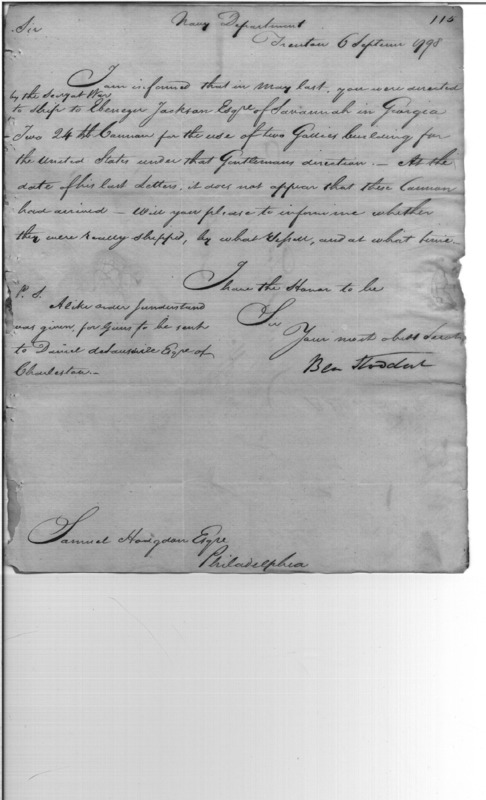 115
Navy Department
Sir
Trenton 6 Septemr 1798
I am informed that in May last, you were directed
by the Secy at War
to ship to Ebenezer Jackson Esqre of Savannah in Georgia
Two 24 lb Cannon for the use of two Gallies building for
the United States under that Gentlemans direction. — At the
date of his last Letters, it does not appear that these Cannon
had arrived — Will you please to inform me whether
they were really shipped, by what Vessell, and at what time
I have the Honor to be
Sir
Your most obed Servt
Ben Stoddert
P. S.
A like order I understand
was given, for Guns to be sent
to Daniel Esqre of
Charleston. —
Samuel Hodgdon Esqre
Philadelphia